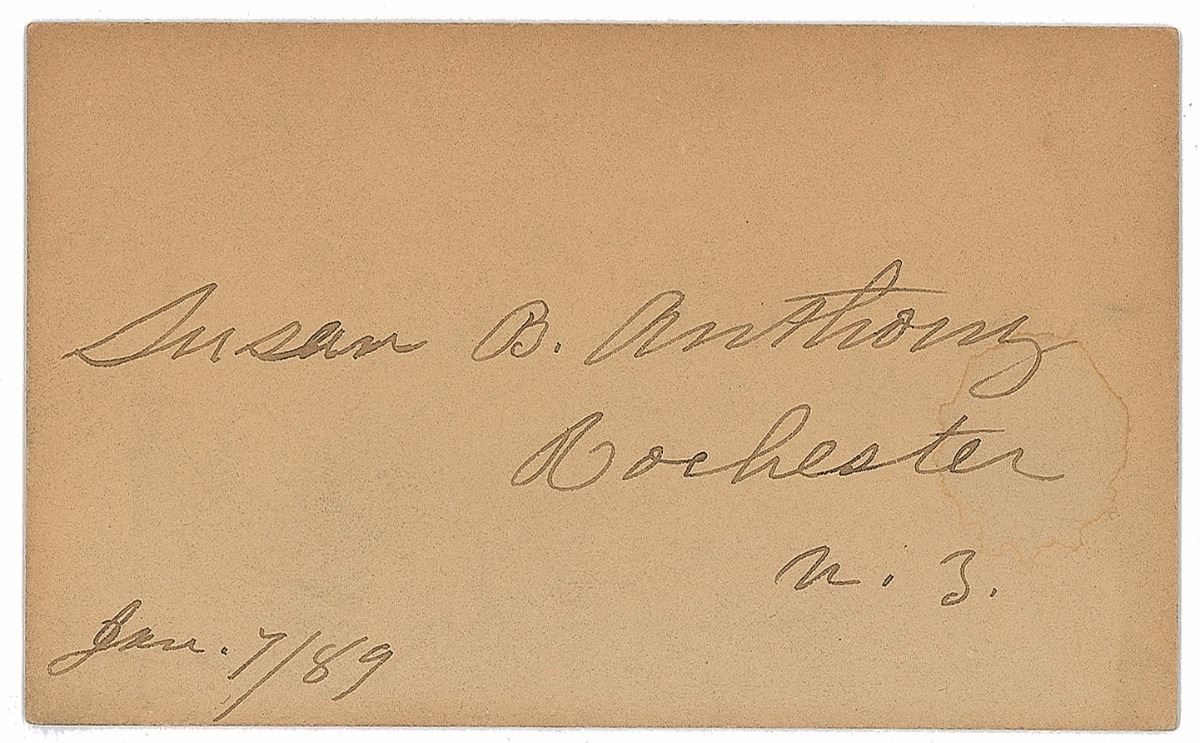 Susan B. Anthony
Rochester
N. Y.
Jan. 7/89